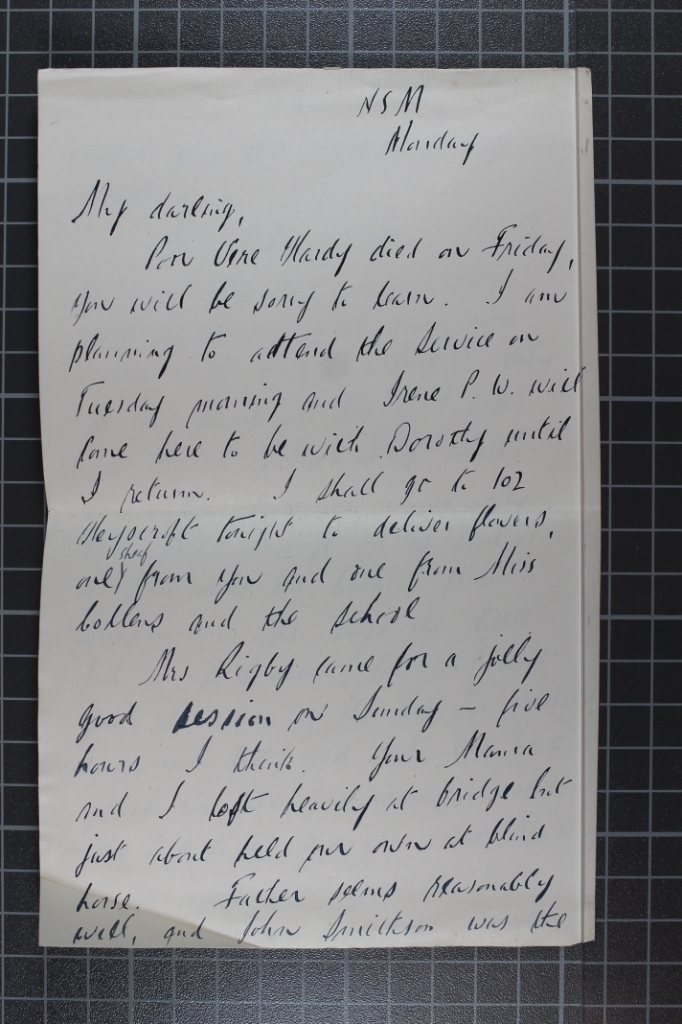 NSM
Monday
My darling,
Poor Vene Hardy died on Friday,
you will be sorry to learn. I am
planning to attend the service on
Tuesday morning and Irene P. W. will
come here to be with Dorothy until
I return. I shall go to 102
tonight to deliver flowers,
one sheaf from you and one from Miss
Collens and the school
Mrs Rigby came for a jolly
good session on Sunday – five
hours I think. Your Mama
and I lost heavily at bridge but
just about held our own at blind
horse. Father seems reasonably
well, and John Smithson was the